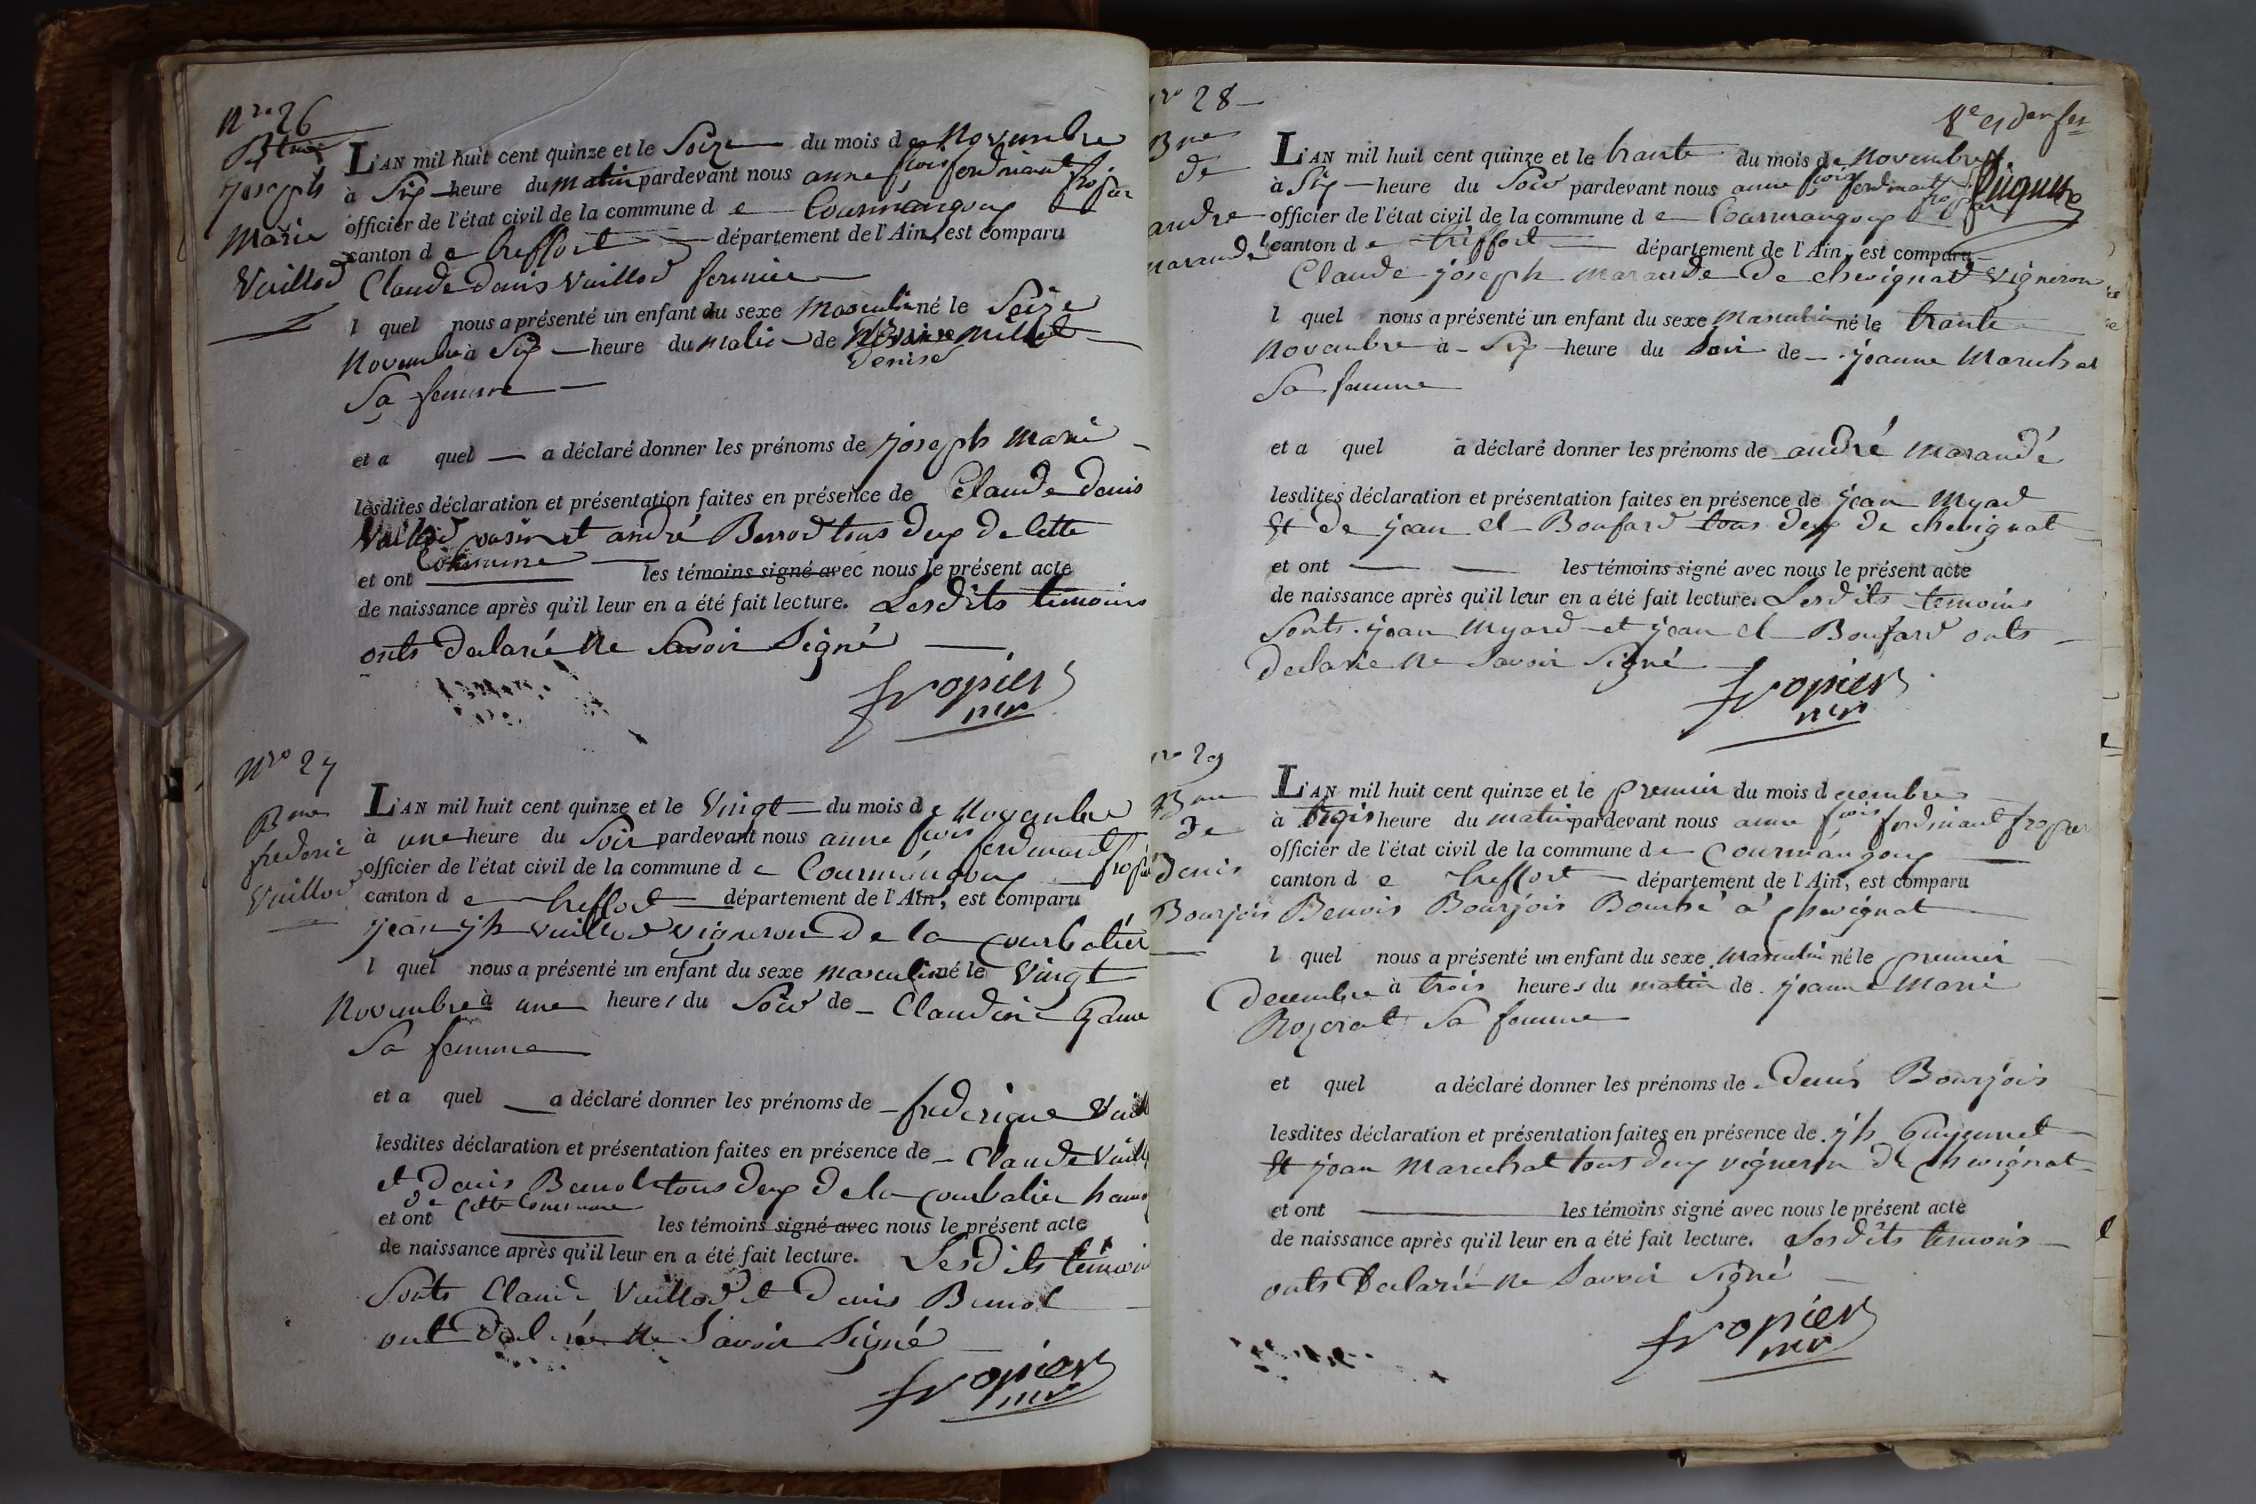 Nro 26
Joseph
Marie
Vuillod
L'AN mil huit cent quinze et le Seize du mois de Novembre
à Six heure du matin pardevant nous anne fçois ferdinand fropier
officier de l'état civil de la commune de Courmangoux
canton de treffort département de l'Ain, est comparu
Claude Denis Vuillod fermier
l quel nous a présenté un enfant du sexe Masculin né le Seize
Novembre à Six heure du matin de Millet
Denise
Sa femme
et a quel a déclaré donner les prénoms de joseph Marie
lesdites déclaration et présentation faites en présence de Claude Denis
Vuillod voisin et andré Berrod tous deux de Cette
Commune
et ont les témoins signé avec nous le présent acte
de naissance après qu'il leur en a été fait lecture. Lesdits temoins
onts declarié ne Savoir Signé
fropier
mre
Nro 27
Bme
frederic
Vuillod
L'AN mil huit cent quinze et le Vingt du mois de Novembre
à une heure du Soir pardevant nous anne fçois ferdinant fropier
officier de l'état civil de la commune de Courmangoux
canton de treffort département de l'Ain, est comparu
jean jh Vuillod vigneron de la Courbatier
l quel nous a présenté un enfant du sexe masculin né le Vingt
Novembre à une heure du Soir de Claudine Game
Sa femme
et a quel a déclaré donner les prénoms de frederique Vuill
lesdites déclaration et présentation faites en présence de Claude Vuill
et Denis Benol tous deux de la Courbatier hamo
de Cette Commune
et ont les témoins signé avec nous le présent acte
de naissance après qu'il leur en a été fait lecture. Lesdits temoin
Sonts Claude Vuillod et Denis Benol
ont declarié ne Savoir Signé
fropier
mre
nro 28
Bme
de
andré
marandé
8e et der fet
L'AN mil huit cent quinze et le trante du mois de Novembre
à Six heure du Soir pardevant nous anne fçois ferdinant fropier
officier de l'état civil de la commune de Courmangoux
canton de treffort département de l'Ain, est comparu
Claude joseph marande de chevignat vigneron
l quel nous a présenté un enfant du sexe masculin né le trante
Novembre à Six heure du Soir de jeanne Marechal
Sa femme
et a quel a déclaré donner les prénoms de andré marandé
lesdites déclaration et présentation faites en présence de jean Myard
Et de jean cl Boufard tous deux de chevignat
et ont les témoins signé avec nous le présent acte
de naissance après qu'il leur en a été fait lecture. Lesdits temoins
Sonts jean Myard et jean cl Boufard onts
declarié ne Savoir Signé
fropier
mre
nro 29
Bme
de
Denis
Bourjois
L'AN mil huit cent quinze et le premier du mois decembre
à trois heure du matin pardevant nous anne fçois ferdinant fropier
officier de l'état civil de la commune de Courmangoux
canton de treffort département de l'Ain, est comparu
Benois Bourjois à chevignat
l quel nous a présenté un enfant du sexe masculin né le premier
decembre à trois heures du matin de jeanne Marie
Rozerat Sa femme
et quel a déclaré donner les prénoms de Denis Bourjois
lesdites déclaration et présentation faites en présence de jh Guyennet
Et jean Marechal tous deux vigneron de chevignat
et ont les témoins signé avec nous le présent acte
de naissance après qu'il leur en a été fait lecture. Lesdits temoins
onts declarié ne Savoir signé
fropier
mre